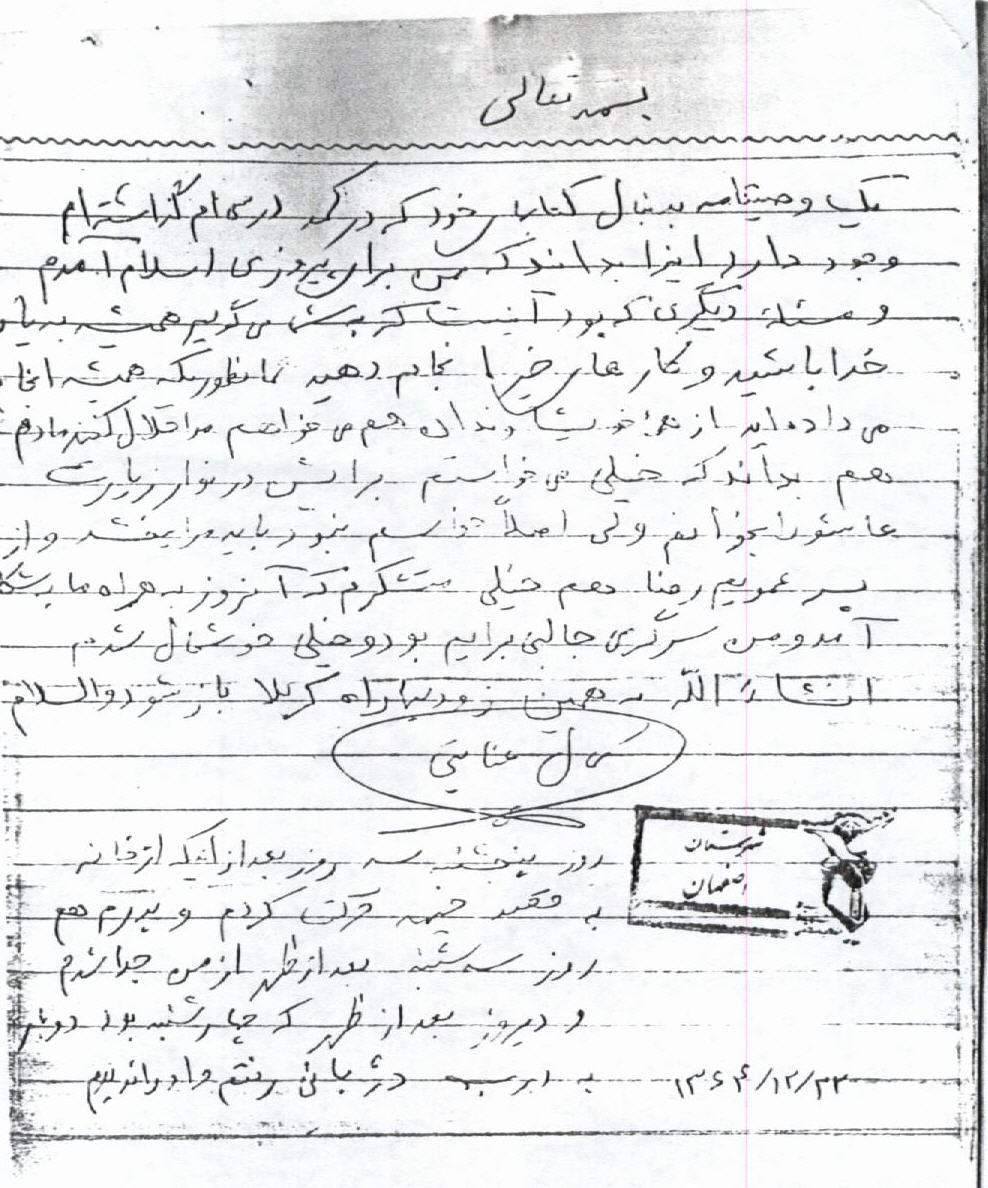 بسمه تعالی
یک وصیتنامه بدنبال کتابهای خود که در کمد درسی ام گذاشته ام
وجود دارد اینرا بدانید که من برای پیروزی اسلام آمدم
و مسئله دیگری که بود آنست که به شما می گویم همیشه به یاد
خدا باشید و کارهای خیر انجام دهید همانطوریکه همیشه انجا
می داده اید از همه خویشاوندان هم می خواهم مرا حلال کنند مادرم
هم بداند که خیلی می خواستم برایش در نوار زیارت
عاشورا بخوانم ولی اصلاً حواسم نبود باید مرا ببخشد و از
پسر عمویم رضا هم خیلی متشکرم که آنروز به همراه ما
آمد و من سرگرمی جالبی برایم بود و خیلی خوشحال شدم
انشاء الله به همین زودیها راه کربلا باز شود والسلام
عنایتی
شهرستان
اصفهان
روز پنجشنبه سه روز بعد از اینکه از خانه
به قصد جبهه حرکت کردم و پدرم هم
روز سه شنبه بعد از ظهر از من جدا شدم
و دیروز بعد از ظهر که چهارشنبه بود دوباره
به درب دژبانی رفتم و او را ندیدم